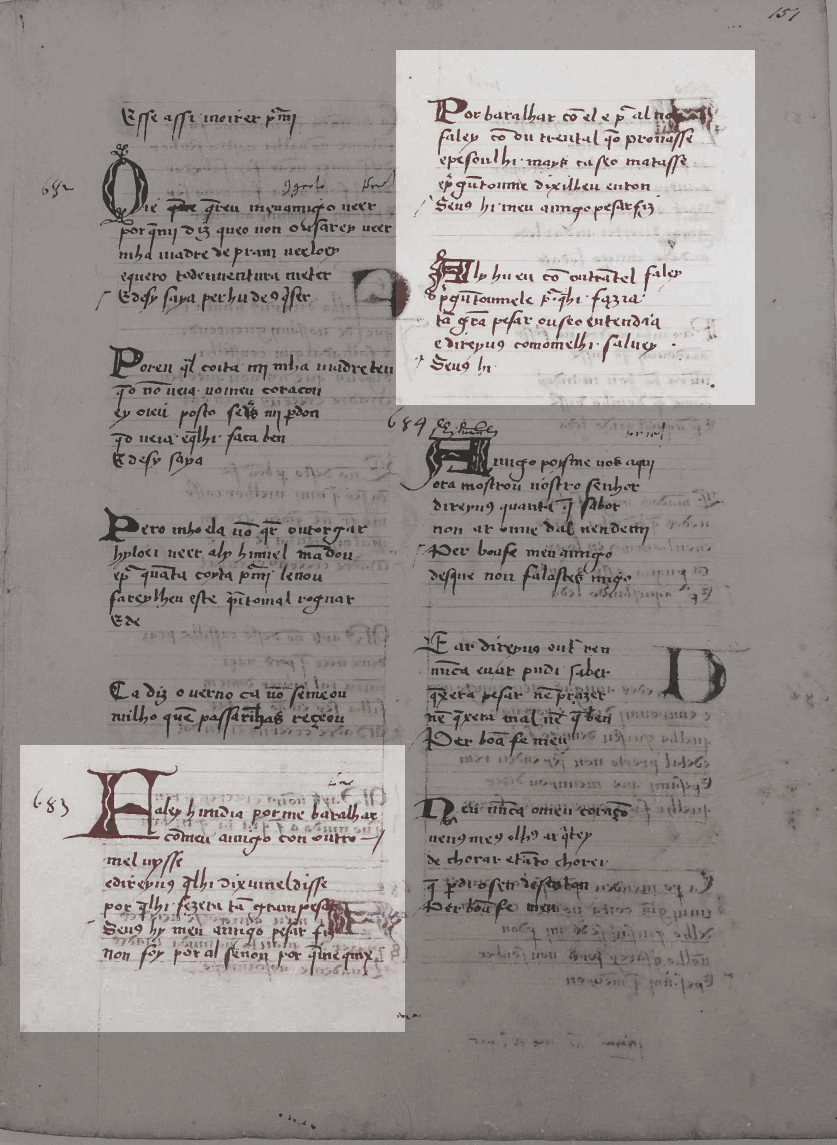 151
Esse assi moirer p̃ mj
682
Que q̃reu meu amigo veer
por q̃ mj diz que non ousarey veer
mha madre de pram veeloey
e quero todenventura meter
E desy saya per hu de9 q̃ser
Poren tal coita mj mha madre ten
q̃o nõ veia no meu coraçon
ey oieu posto se d9s mj p̃don
q̃o veia e q̃lhi faca ben
E desy saya
Pero mho ela nõ q̃r outorgar
hyloei veer aly hu mel mãdou
e p̃ quãta coyta p̃ mj leuou
farey lheu este e q̃nto mal roguar
E de
Ca diz o uerno ca nõ semeou
milho quẽ passarinhas reçeou
683
Faley hũ dia por me baralhar
cõ meu amigo con outro
mel uysse
e direyu9 q̃lhi dixu mel disse
por q̃ lhi fezera tã gram pesar
Seu9 hy meu amigo pesar fiz
non foy por al senon por q̃ me quix
Por baralhar cõ el e p̃ al nõ
faley cõ outren tal q̃o prouasse
e pesoulhi mays ca seo matasse
e p̃gũtoume dixilheu enton
Seu9 hi meu amigo pesar fiz
Aly hu eu cõ outrã tel faley
p̃gũtoumele p̃ q̃ lhi fazia
tã grã pesar ou seo entendia
e direyu9 como melhi saluey
Seu9 hi
684
Amigo poys me uos aqui
ora mostrou nostro senhor
direyu9 quant a q̃ sabor
non ar ouue dal nen de mj
Per boa fe meu amigo
des que non falastes migo
E ar direyu9 outr̃ ren
nũca eu ar pudi saber
q̃ xera pesar nẽ prazer
nẽ q̃ xera mal nẽ q̃ ben
Per boã fe meu
Nen nũca o meu coraçõ
nen9 me9 olh9 ar q̃tey
de chorar e tãto chorey
q̃ p̃di o sen des enton
Per boã fe meu